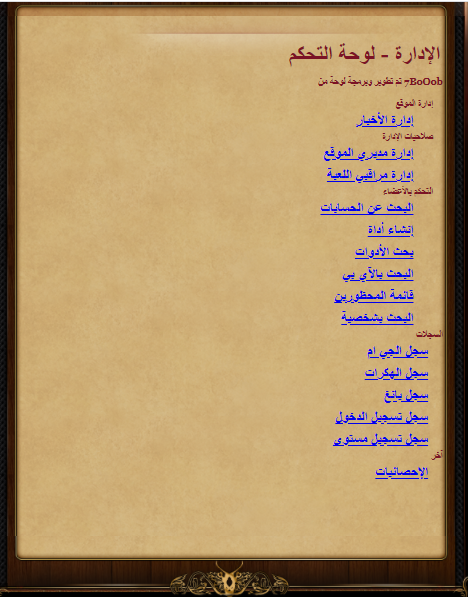 الإدارة - لوحة التحكم
تم تطوير وبرمجة لوحة من 7BoOob
إدارة الموقع
إدارة الأخبار
صلاحيات الإدارة
إدارة مديري الموقع
إدارة مراقبي اللعبة
التحكم بالأعضاء
البحث عن الحسابات
إنشاء أداة
بحث الأدوات
البحث بالآي بي
قائمة المحظورين
البحث بشخصية
السجلات
سجل الجي ام
سجل الهكرات
سجل يانغ
سجل تسجيل الدخول
سجل تسجيل مستوى
آخر
الإحصائيات